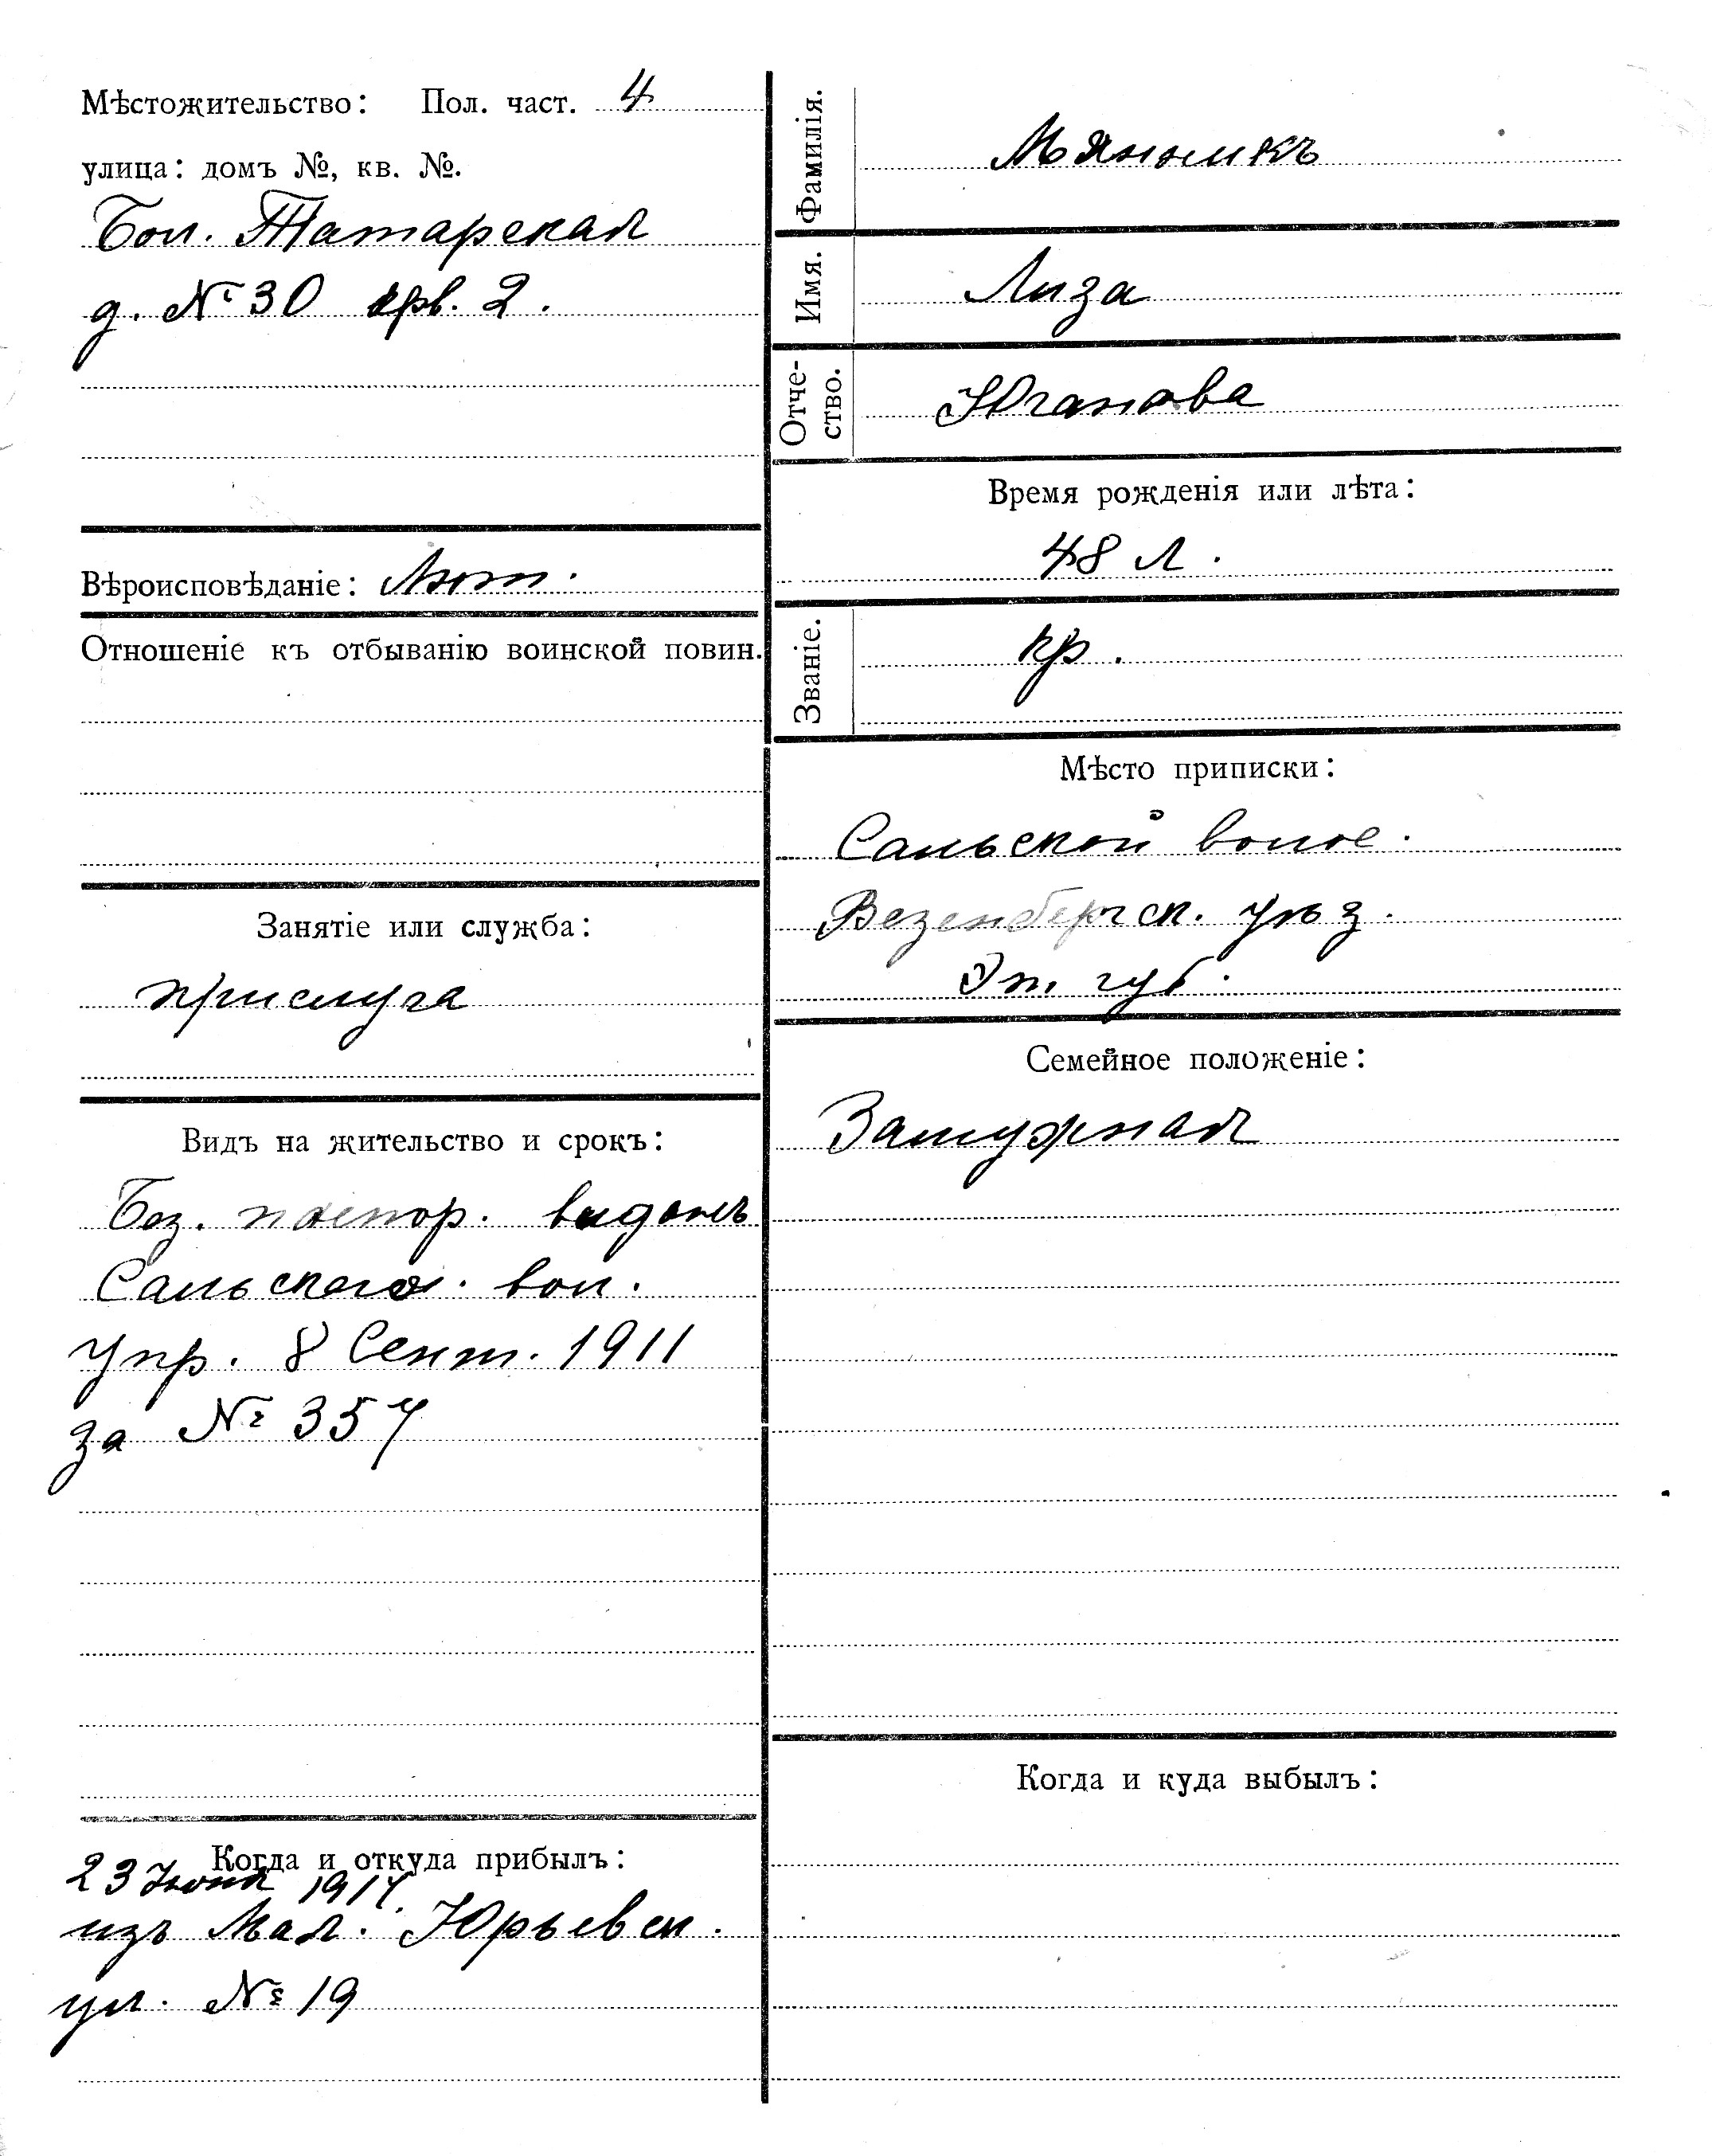 Мѣстожительство: Пол. част. 4
улица: домъ №, кв. №.
Бол. Татарская
д. № 30 крв. 2.
Вѣроисповѣданіе: Лют.
Отношеніе къ отбыванію воинской повин.
Занятіе или служба:
прислуга
Видъ на жительство и срокъ:
Без. паспор. выданъ
Сальского. вол.
упр. 8 Сент. 1911
за № 357
Когда и откуда прибылъ:
23 Июня 1917
изъ Мал. Юрьевск.
ул. № 19
Фамилія.
Мянникъ
Имя.
Лиза
Отче-
ство.
Юганова
Время рожденія или лѣта:
48 л.
Званіе.
кр.
Мѣсто приписки:
Сальской волос.
Везенбергск. уѣз.
Эт. губ.
Семейное положеніе:
Замужная
Когда и куда выбылъ: